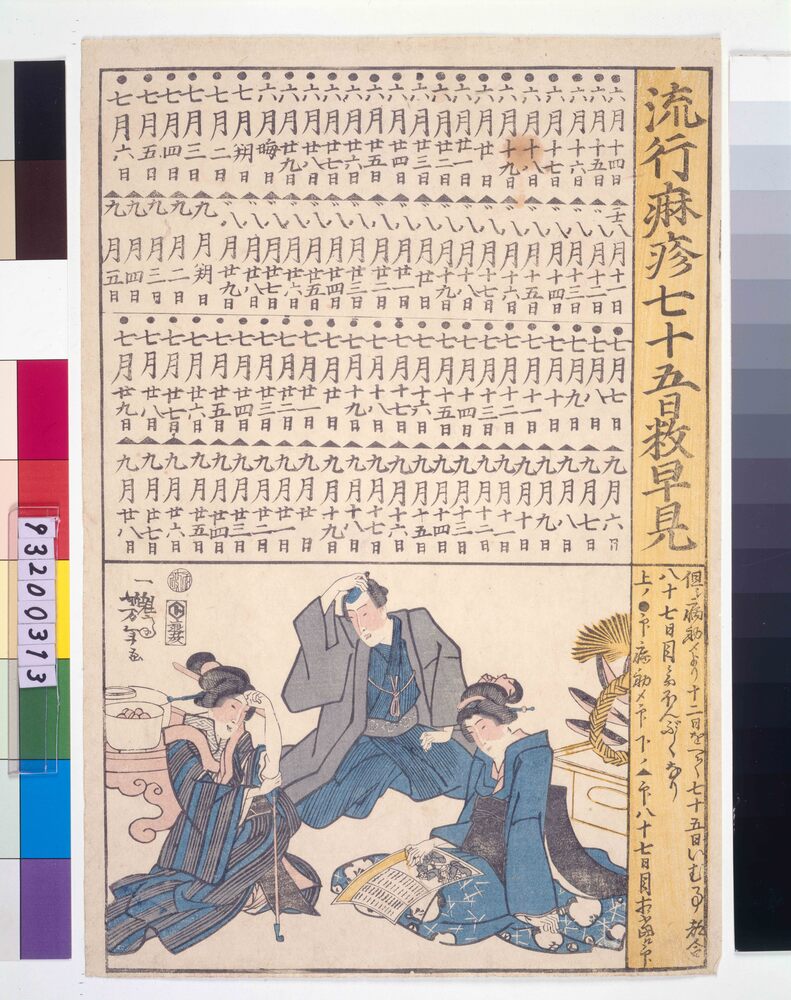 流行痲疹七十五日数早見
但し病初メより十二日を
七十五日いむ事都合
八十七日目
上ノ●印病初メ印 下ノ▲印八十七日目
●六月十四日
●六月十五日
●六月十六日
●六月十七日
●六月十八日
●六月十九日
●六月廿日
●六月廿一日
●六月廿二日
●六月廿三日
●六月廿四日
●六月廿五日
●六月廿六日
●六月廿七日
●六月廿八日
●六月廿九日
●六月晦日
●七月朔日
●七月二日
●七月三日
●七月四日
●七月五日
●七月六日
▲壬八月十一日
▲〃八月十二日
▲〃八月十三日
▲〃八月十四日
▲〃八月十五日
▲〃八月十六日
▲〃八月十七日
▲〃八月十八日
▲〃八月十九日
▲〃八月廿日
▲〃八月廿一日
▲〃八月廿二日
▲〃八月廿三日
▲〃八月廿四日
▲〃八月廿五日
▲〃八月廿六日
▲〃八月廿七日
▲〃八月廿九日
▲九月朔日
▲九月二日
▲九月三日
▲九月四日
▲九月五日
●七月七日
●七月八日
●七月九日
●七月十日
●七月十一日
●七月十二日
●七月十三日
●七月十四日
●七月十五日
●七月十六日
●七月十七日
●七月十八日
●七月十九日
●七月廿日
●七月廿一日
●七月廿二日
●七月廿三日
●七月廿四日
●七月廿五日
●七月廿六日
●七月廿七日
●七月廿八日
●七月廿九日
▲九月六日
▲九月七日
▲九月八日
▲九月九日
▲九月十日
▲九月十一日
▲九月十二日
▲九月十三日
▲九月十四日
▲九月十五日
▲九月十六日
▲九月十七日
▲九月十八日
▲九月十九日
▲九月廿日
▲九月廿一日
▲九月廿二日
▲九月廿三日
▲九月廿四日
▲九月廿五日
▲九月廿六日
▲九月廿七日
▲九月廿八日
一魁斎芳年画
93200313